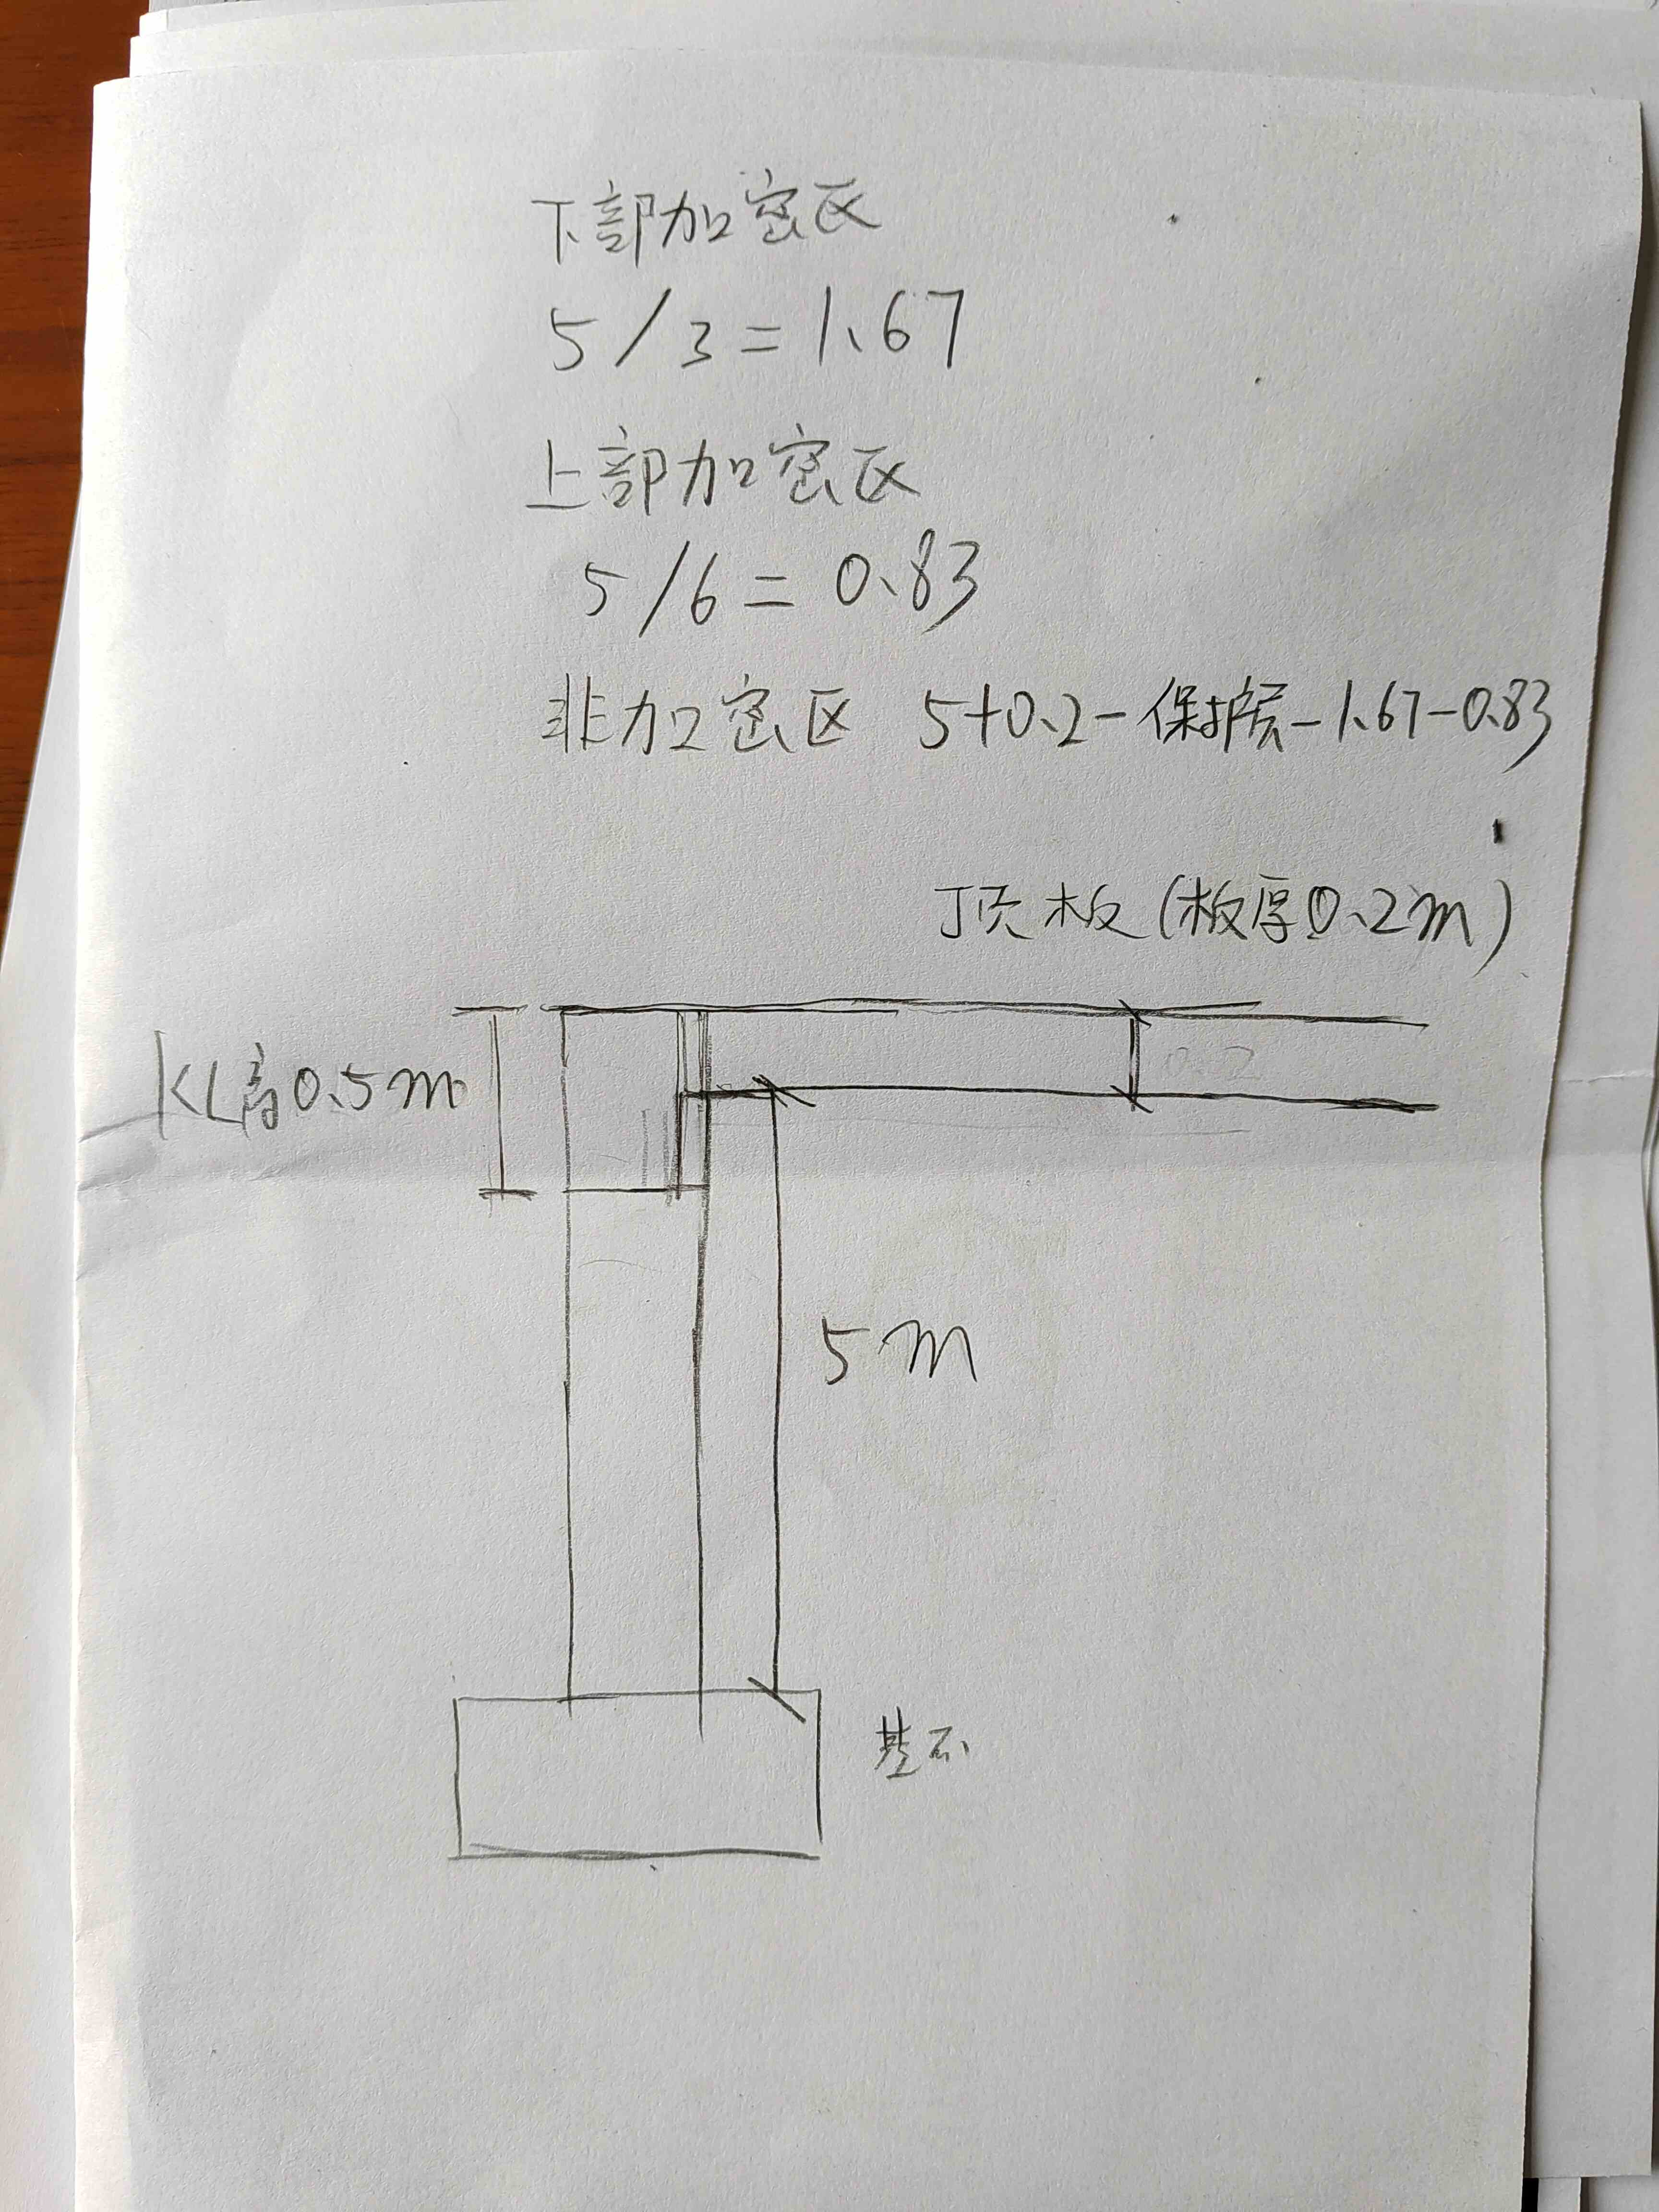 下部加密区
5/3=1.67
上部加密区
5/6=0.83
非加密区 5+0.2-保护层-1.67-0.83
顶板(板厚0.2m)
KL高0.5m
0.2
5m